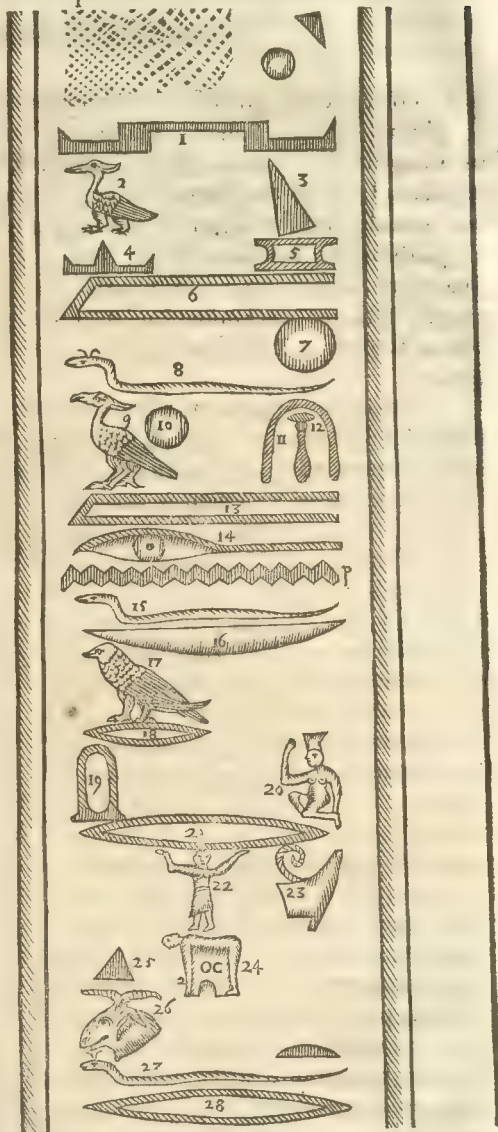 1
2
3
4
5
6
7
8
9
10
11
12
13
14
P
15
16
17
18
19
20
22
23
24
OC
2
25
26
27
28